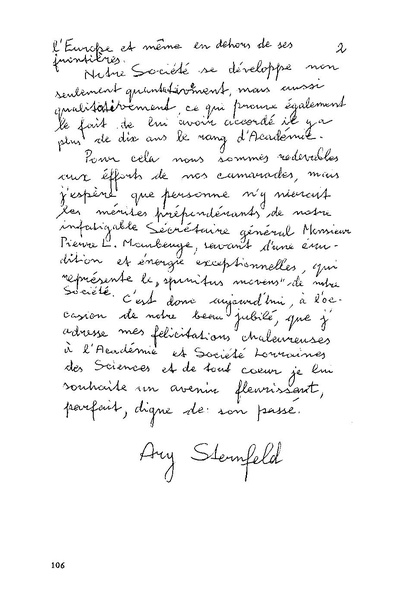 l'Europe et même en dehors de ses 2
frontières.
Notre Société se développe non
seulement quantativement, mais aussi
qualitativement ce qui prouve également
le fait de lui avoir accordé il y a
plus de dix ans le rang d'Académie.
Pour cela nous sommes redevables
aux éfforts de nos camarades, mais
j'espère que personne n'y nierait
les mérites prépondérants de notre
infatigable Sécrétaire général Monsieur
Pierre L. Maubeuge, savant d'une éru-
dition et énergie exceptionnelles, qui
représente le „spiritus movens" de notre
Société. C'est donc aujourd'hui, à l'oc-
casion de notre beau jubilé, que j'
adresse mes félicitations chaleureuses
à l'Académie et Société Lorraines
des Sciences et de tout coeur je lui
souhaite un avenir fleurissant,
parfait, digne de son passé.
Ary Sternfeld
106